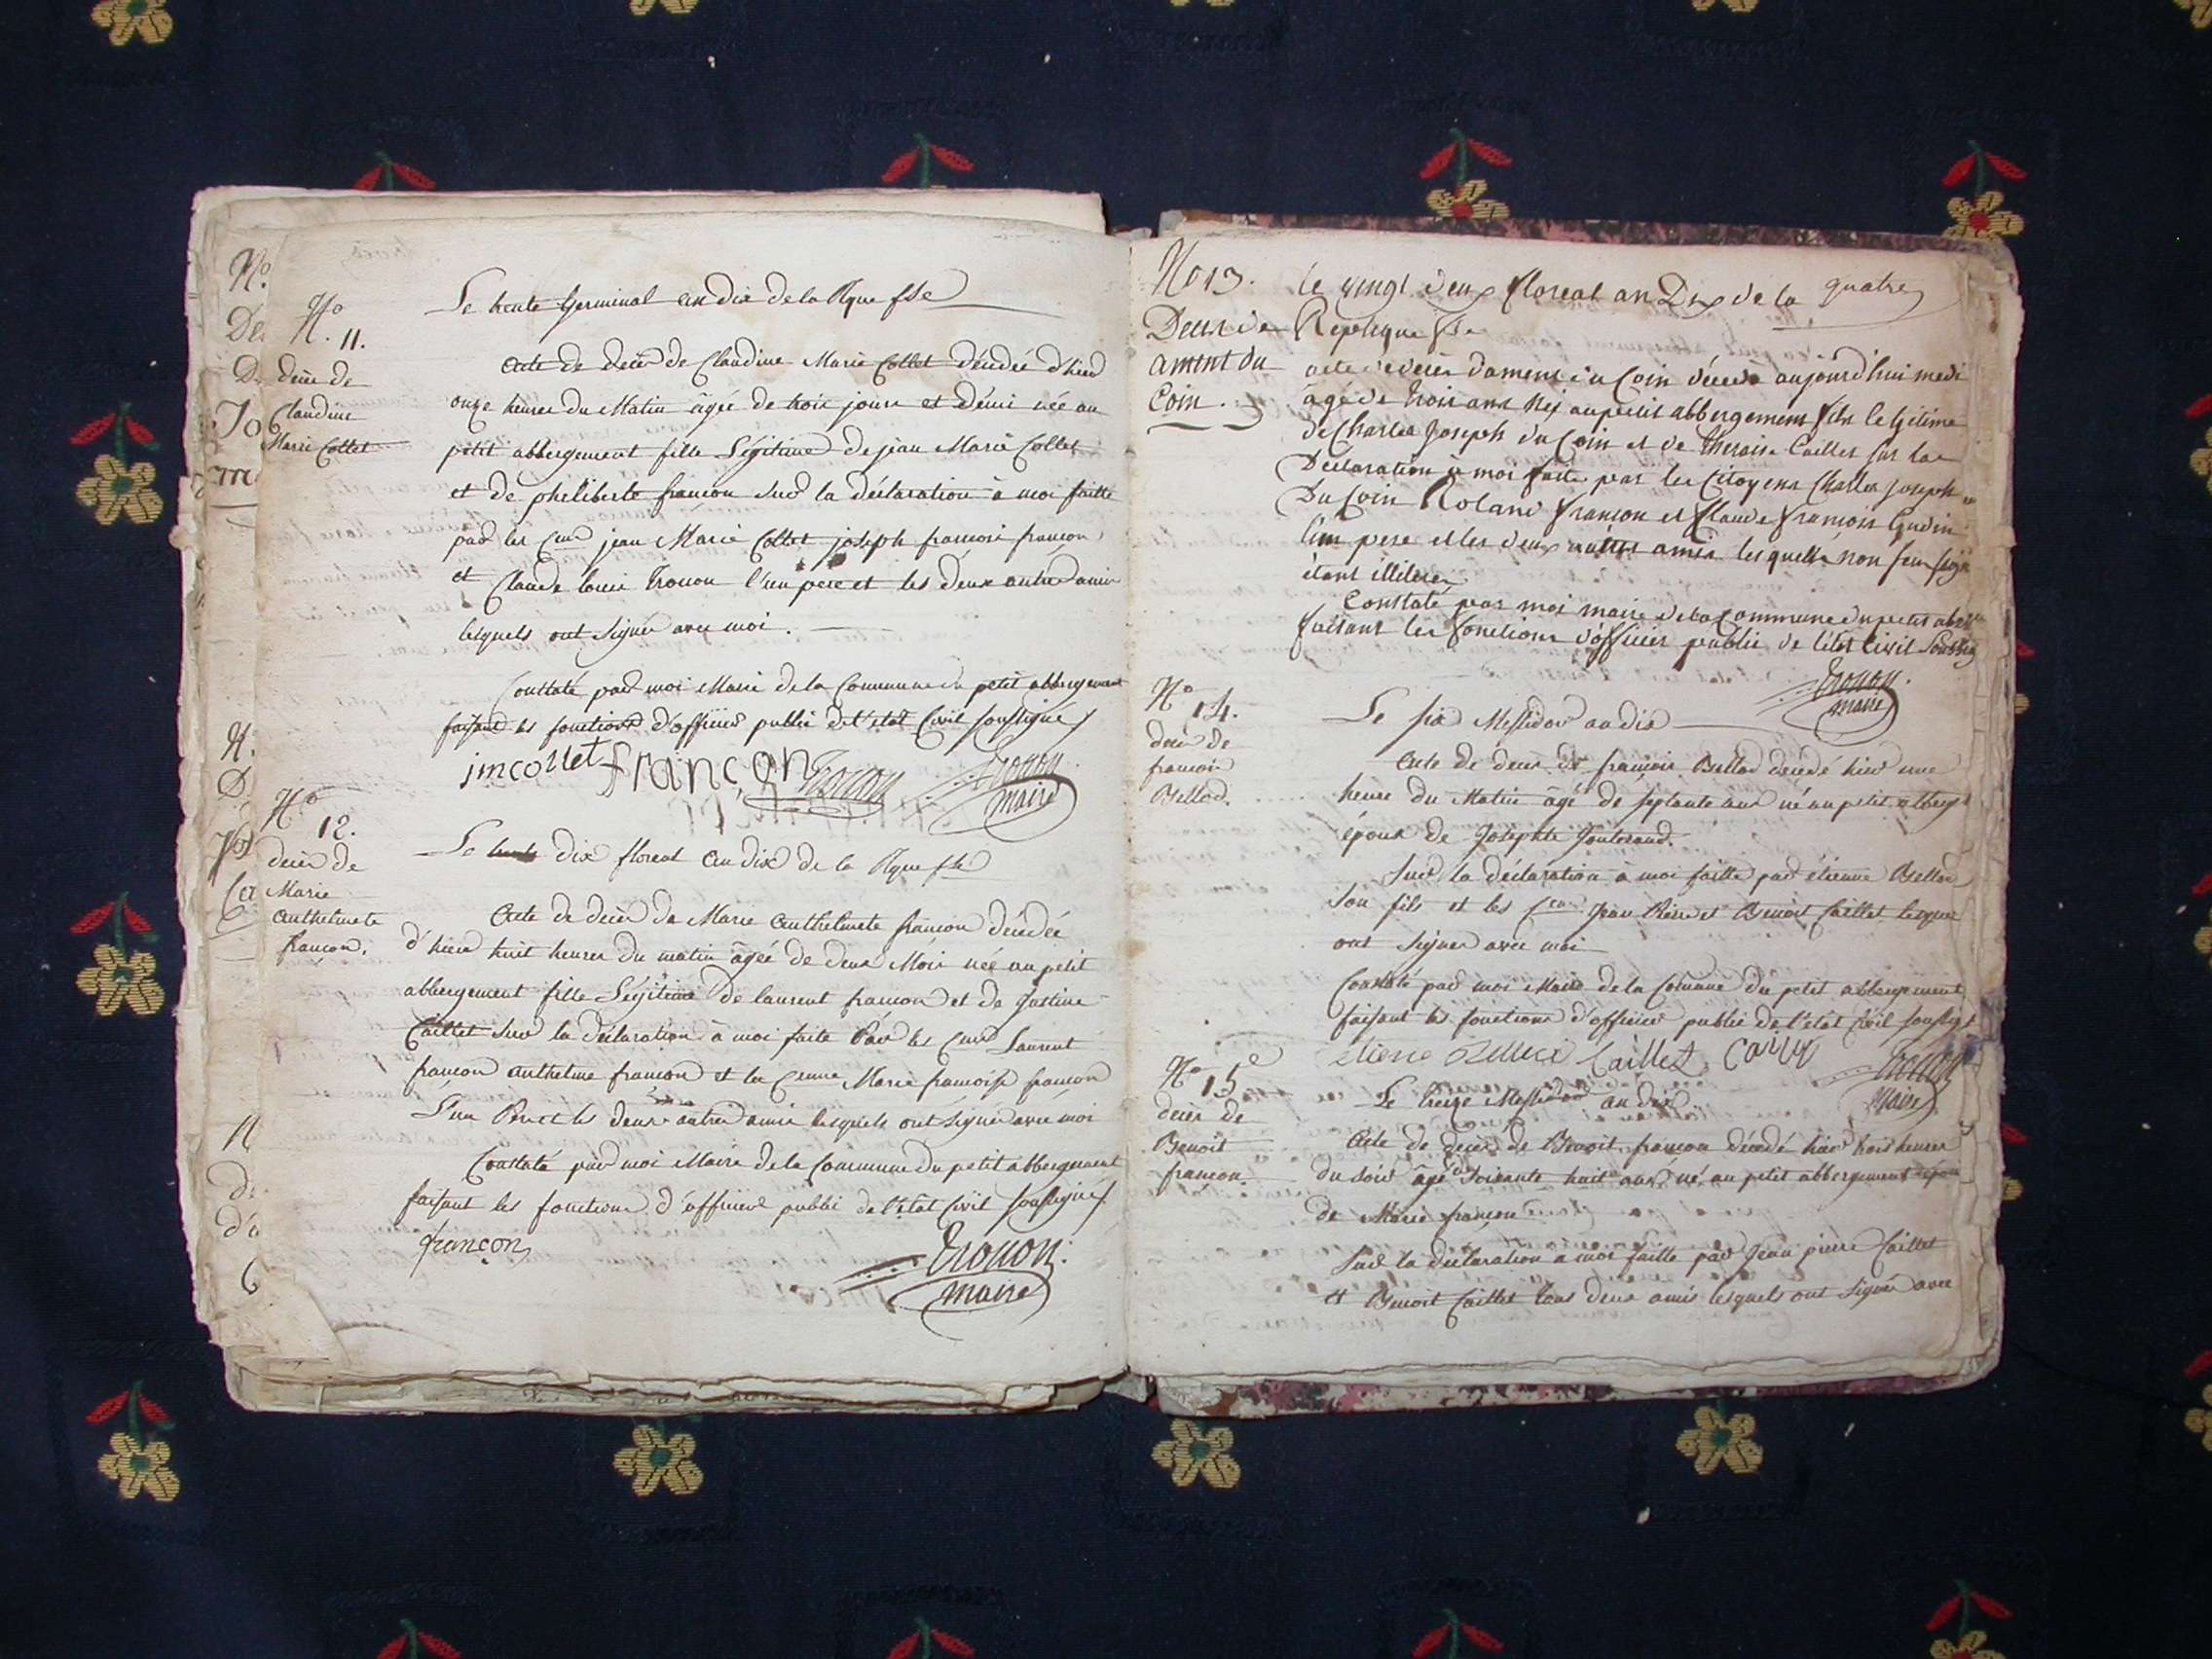 N°
11.
décès de
Claudine
Marie Collet
Le trente Germinal an dix de la Rque fse
Acte de décès de Claudine Marie Collet décédée d'hier
onze heures du Matin âgée de trois jours et démi née au
petit abbergement fille Légitime de jean Marie Collet
et de pheliberte françon sur la déclaration à moi faitte
par les Cens jean Marie Collet joseph françois françon
et Claude louis Trocon l'un pere et les deux autres amis
lesquels ont signés avec moi.
Constaté par moi Maire de la Commune du petit abbergement
faisant les fonctions d'officier public de l'etat Civil soussigné
jmcollet françon Trocon Trocon
maire
N°
12.
décès de
Marie
Anthelmete
françon.
Le dix floreal an dix de la Rque fse
Acte de décès de Marie Anthelmete françon décédée
d'hier huit heures du matin âgée de deux Mois née au petit
abbergement fille Légitime de laurent françon et de Justine
Caillet sur la déclaration à moi faite Par les Cens Laurent
françon anthelme françon et la Cenne Marie françoise françon
L'un Pere et les deux autres amis lesquels ont signés avec moi
Constaté par moi Maire de la Commune du petit abbergement
faisant les fonctions d'officier public de l'etat Civil soussigné
françon
Trocon
maire
quatre
N° 13.
Deces de
ament du
Coin.
le vingt deux floreal an Dix de la
Repliquefse
acte de decés dament du Coin décedé aujourd'hui medi
âgé de trois ans Néz au petit abbergement fils legitime
de Charles Joseph du Coin et de theraise Caillet sur la
Déclaration à moi faite par les Citoyens Charles Joseph
Du Coin Roland françon et Claude françois Gudin
l'un pere et les deux autres amis lesquells non
étant illiteréz
Constaté par moi maire de la Commune du petit
faisant les fonctions d'officier public de l'état Civil Soussig
Trocon
maire
N°
14.
décès de
françois
Bellod.
Le six Messidor an dix
Acte de décès de françois Bellod décédé hier une
heure du Matin âgé de septante ans né au petit abberg
époux de Josephte Jouterand.
sur la déclaration à moi faitte par étienne Bellod
son fils et les Cens Jean Pierre et Benoit Caillet lesquels
ont signés avec moi
Constaté par moi Maire de la Comune du petit abbergement
faisant les fonctions d'officier public de l'etat Civil
Caillet Trocon
Maire
N°
15
deces de
Benoit
françon
Le treize Messidor an dix
Acte de decès de Benoit françon décédé hier trois heures
du soir âgé soixante huit ans né au petit abbergement époux
de Marie françon
Sur la déclaration a moi faitte par Jean pierre Caillet
et Benoit Caillet tous deux amis lesquels ont signés avec